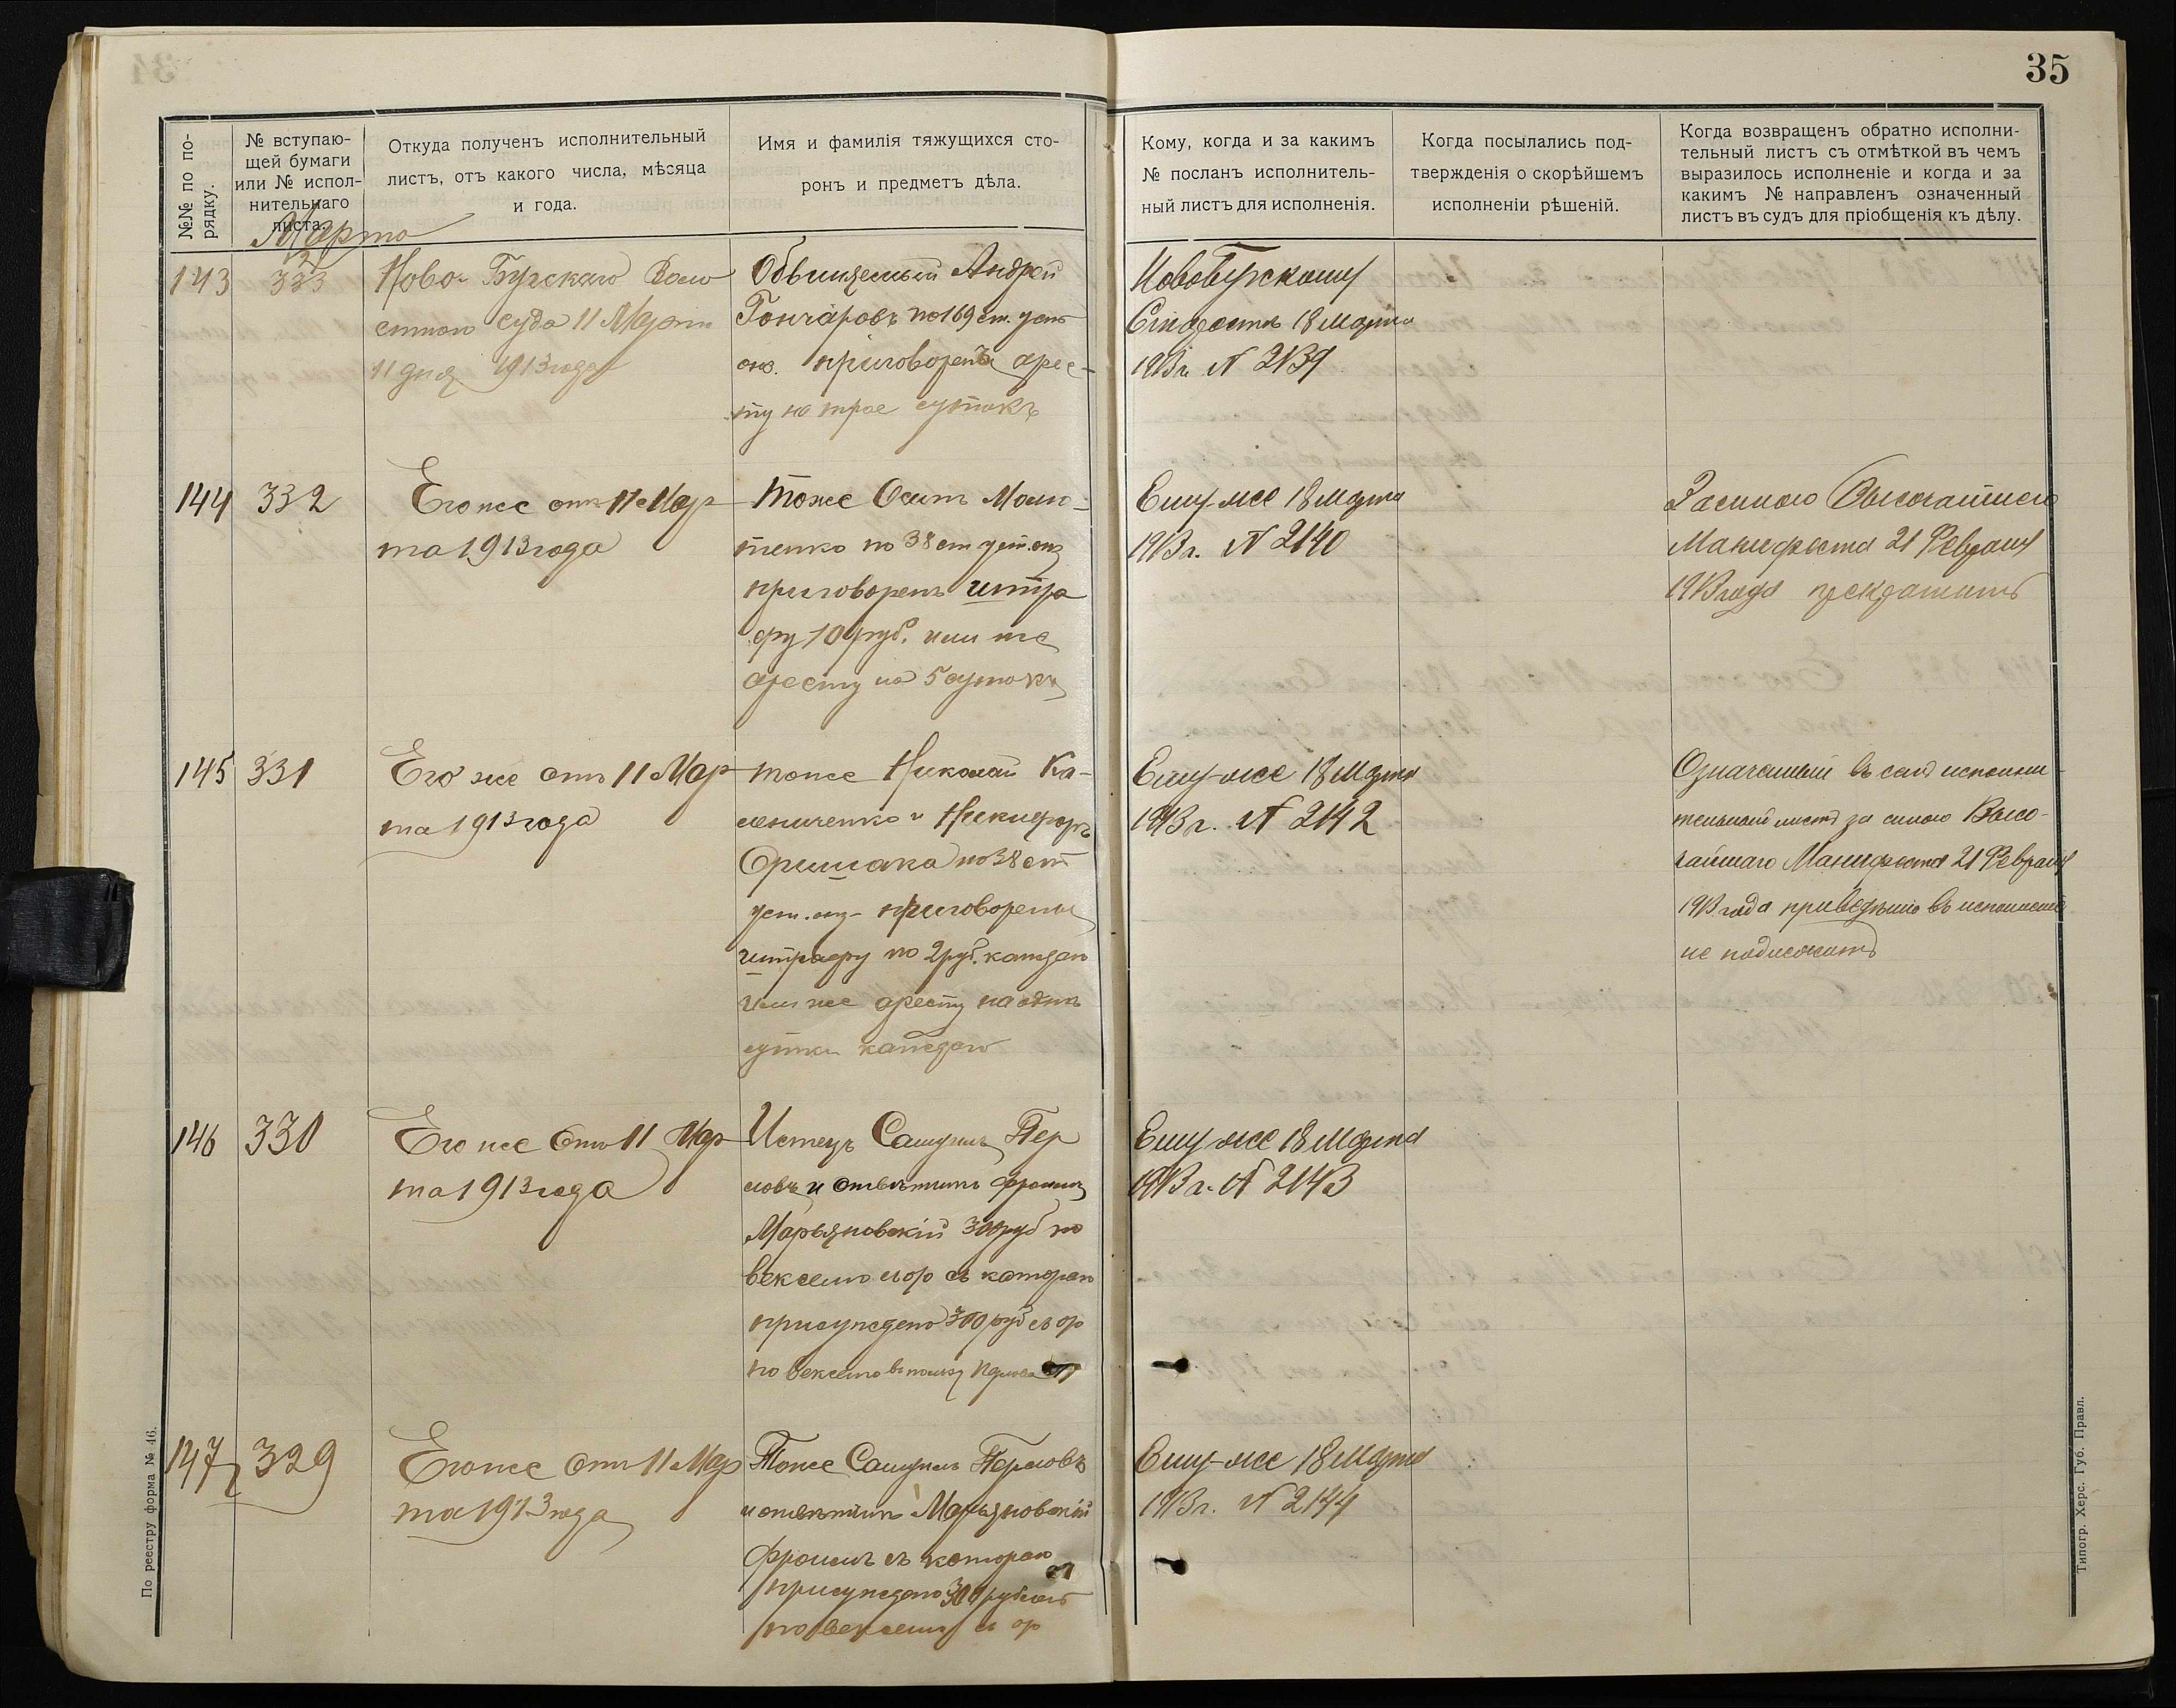 35
№№ по по-
рядку.
№ вступаю-
щей бумаги
или № испол-
нительнаго
листа.
Откуда полученъ исполнительный
листъ, отъ какого числа, мѣсяца
и года.
Имя и фамилія тяжущихся сто-
ронъ и предметъ дѣла.
Кому, когда и за какимъ
№ посланъ исполнитель-
ный листъ для исполненія.
Когда посылались под-
твержденія о скорѣйшемъ
исполненіи рѣшеній.
Когда возвращенъ обратно исполни-
тельный листъ съ отмѣткой въ чемъ
выразилось исполненіе и когда и за
какимъ № направленъ означенный
листъ въ судъ для пріобщенія къ дѣлу.
Марта
143
333
Ново-Бугскаго Воло
стного суда 11 Марта
11 дня 1913 года
Обвиняемый Андрей
Гончаровъ по 169 ст. уст
приговоренъ арес-
ту на трое сутокъ
Новобугскому
Старостѣ 18 Марта
1913 г. № 2139
144
332
Его же отъ 11 Мар
та 1913 года
тоже Осипъ
по 38 ст уст.
приговоренъ штра
фу 10 руб. или же
аресту на 5 сутокъ
Ему-же 18 Марта
1913 г. № 2140
За силою Высочайшего
Манифеста 21 Февраля
1913 года
145
331
Его же отъ 11 Мар
та 1913 года
тоже Николай Ка-
и Никифоръ
по 38 ст
уст. приговорены
штрафу по 2 руб. каждаго
или же аресту на одни
сутки каждаго
Ему-же 18 Марта
1913 г. № 2142
Означенный въ семъ исполни-
тельный листъ за силою Высо-
чайшаго Манифеста 21 Февраля
1913 года приведенію въ исполненіе
не подлежитъ
146
330
Его же отъ 11 Мар
та 1913 года
Истецъ Самуилъ Пер
ловъ и отвѣтчикъ Фроимъ
Марьяновскій 300 руб по
векселю съ котораго
присуждено 300 руб
по векселю въ пользу Перлова
Ему же 18 Марта
1913 г. № 2143
147
329
Его же отъ 11 Мар
та 1913 года
Тоже Самуилъ Перловъ
и отвѣтчикъ Марьяновскій
Фроимъ съ котораго
присуждено 300 рублей
по векселю
Ему-же 18 Марта
1913 г. № 2144
По реестру форма № 46.
Типогр. Херс. Губ. Правл.